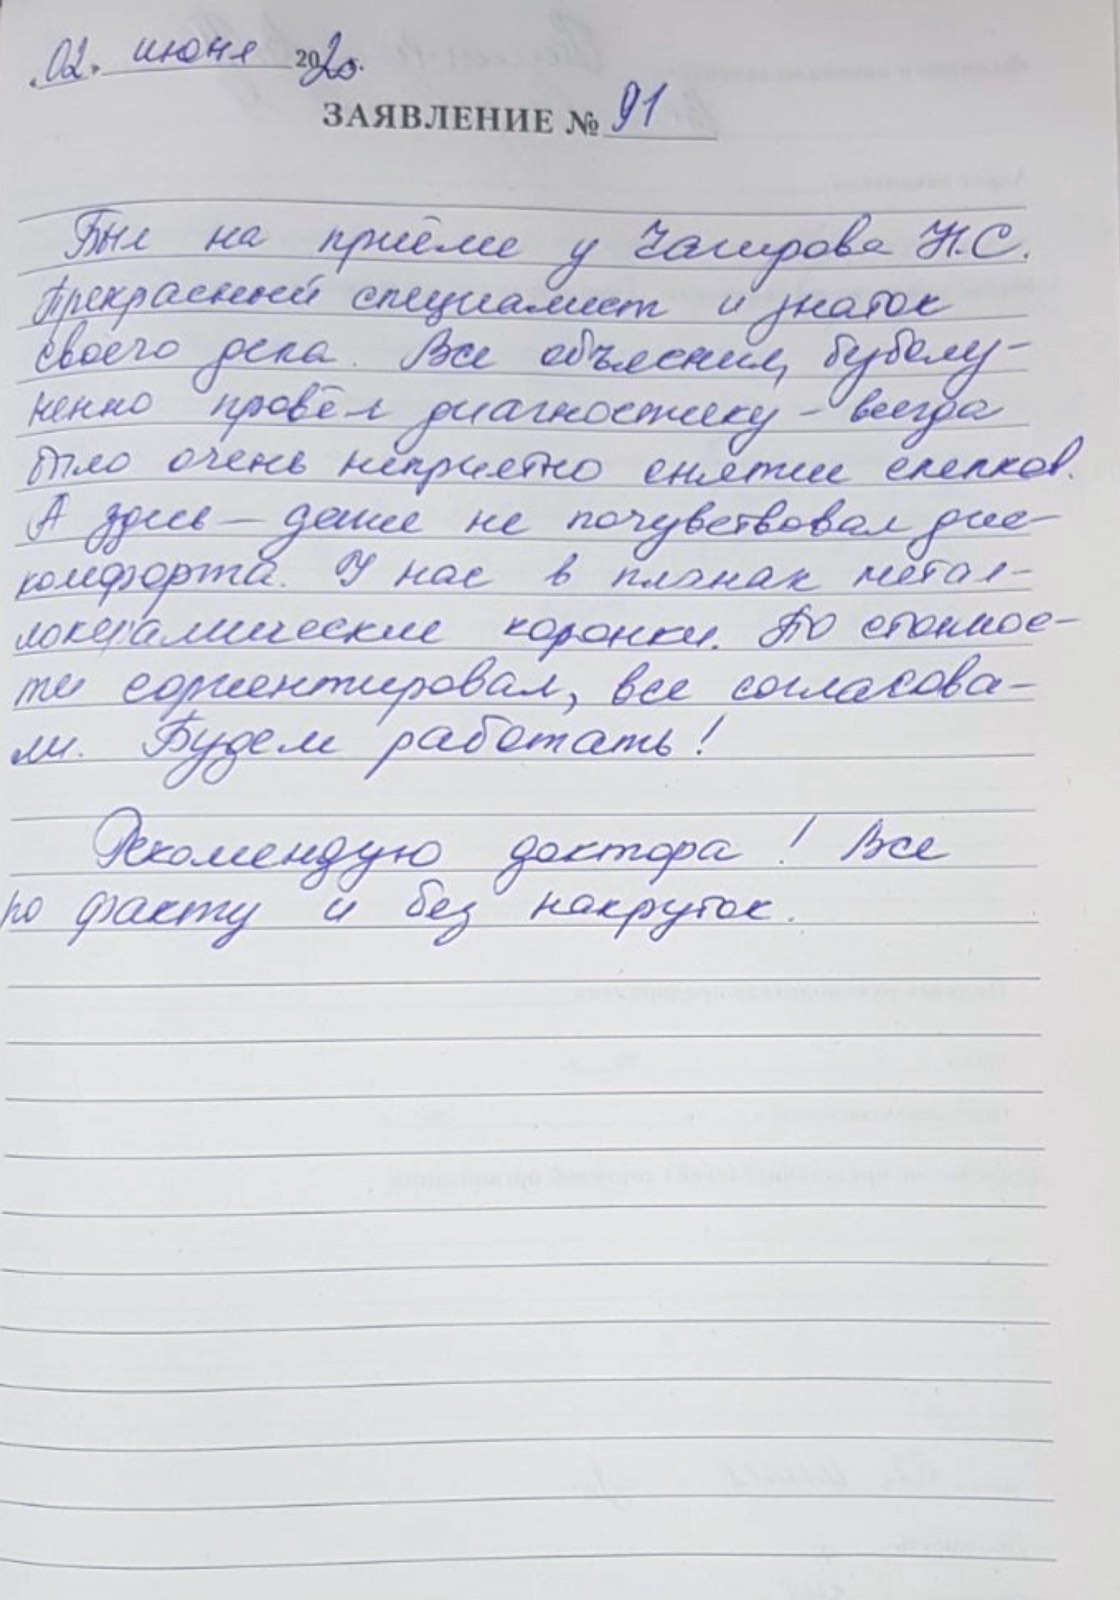 02. июня 2025г.
ЗАЯВЛЕНИЕ № 91
Был на приёме у Чагирова Н.С.
Прекрасный специалист и знаток
своего дела. Все объяснил,
провёл диагностику – всегда
было очень неприятно снятии слепков.
А здесь – даже не почувствовал дис-
комфорта. У нас в планах метал-
локерамические коронки. По стоимос-
ти сориентировал, все согласова-
ли. Будем работать!
Рекомендую доктора! Все
по факту и без накруток.